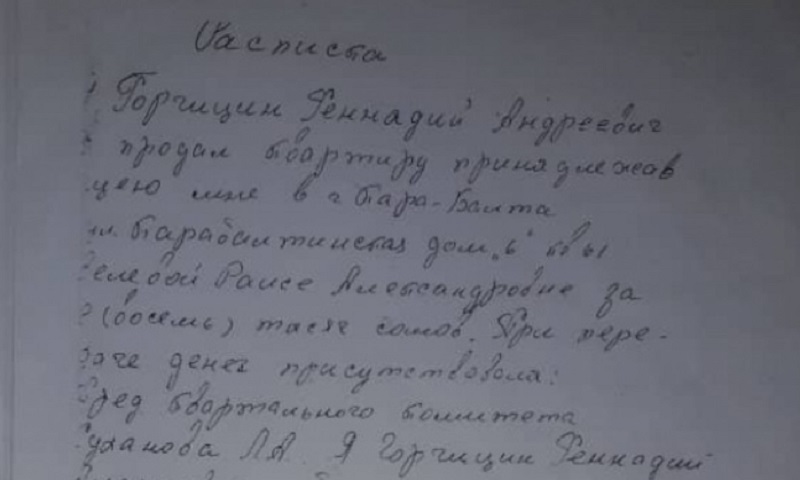 Расписка
Горчицин Геннадий Андреевич
продал квартиру принядлежав
щею мне в г Кара-Балта
ул. Карабалтинская дом „6" кв
Раисе Александровне за
(восемь) тысяч сомов. При пере-
даче денег присутствовала:
Пред квартального комитета
Суханова Л А. Я Горчицин Геннадий